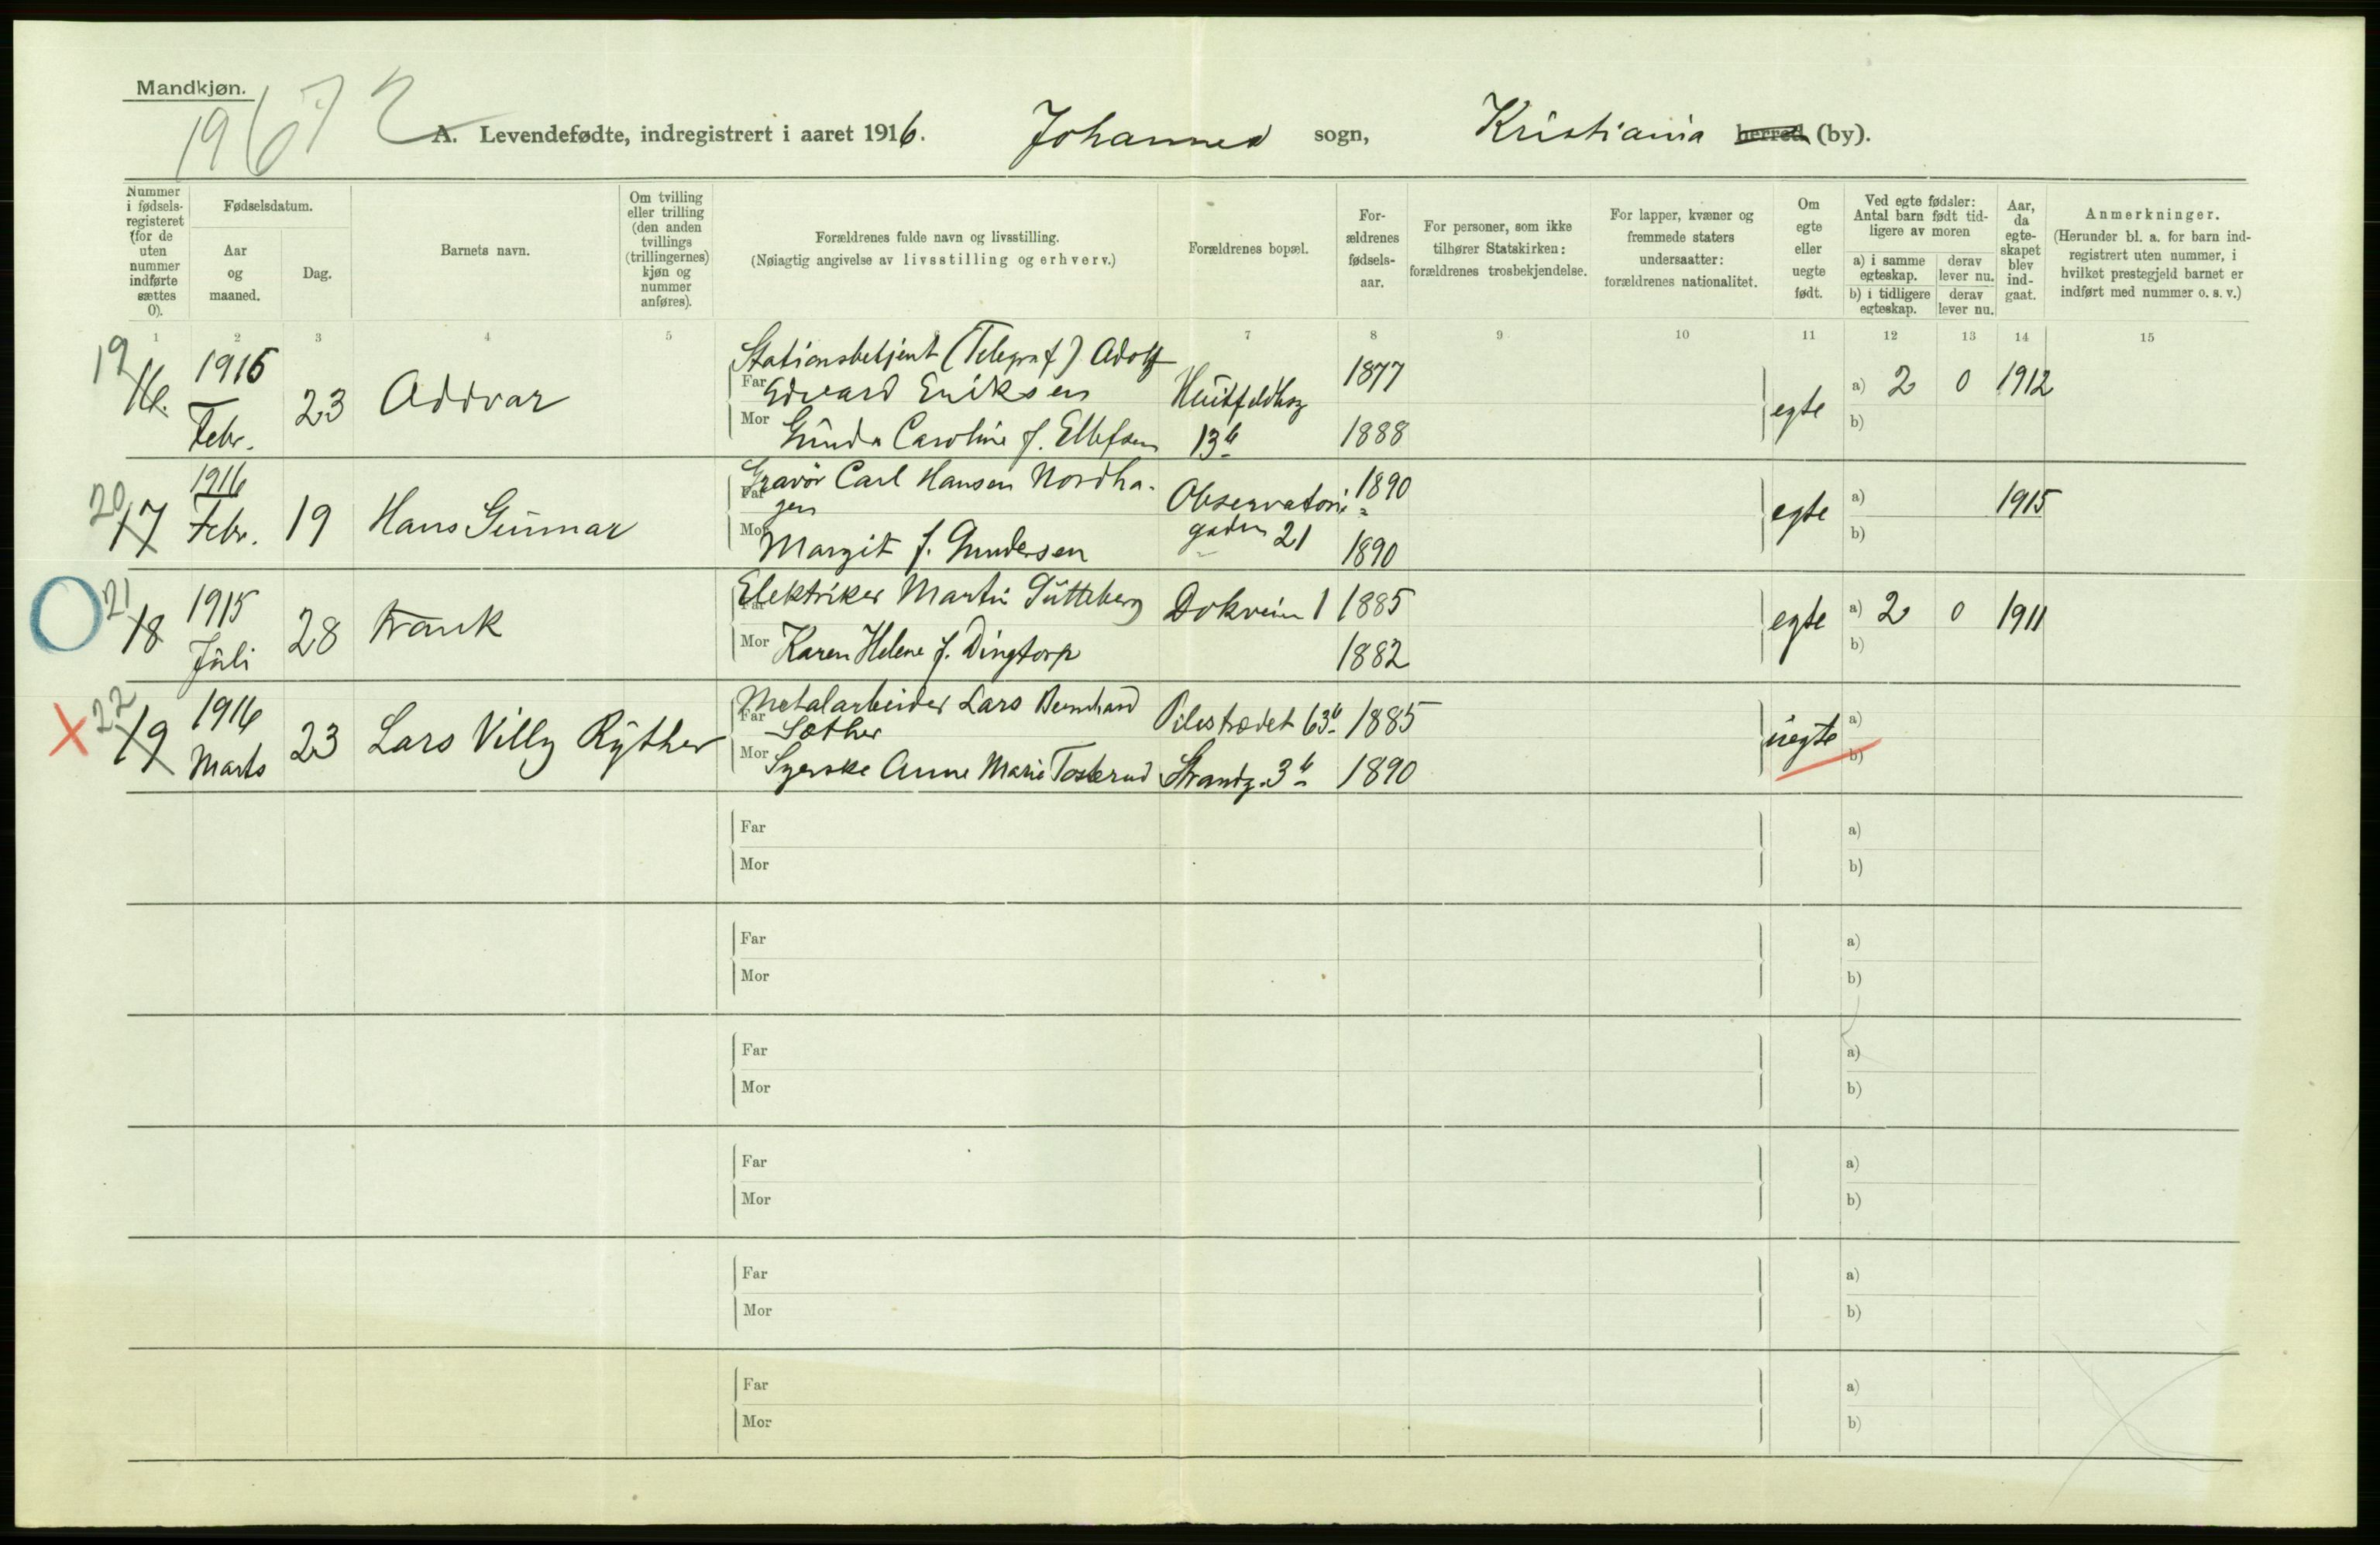 Mandkjøn.
19672
A. Levendefødte, indregistrert i aaret 1916. Johannes sogn, Kristiania herred (by).
Nummer i fødsels-registeret (for de uten nummer indførte sættes 0).
Fødselsdatum.
Aar og maaned.
Dag.
Barnets navn.
Om tvilling eller trilling (den anden tvillings (trillingernes) kjøn og nummer anføres).
Forældrenes fulde navn og livsstilling.
(Nøiagtig angivelse av livsstilling og erhverv.)
Forældrenes bopæl.
For-ældrenes fødsels-aar.
For personer, som ikke tilhører Statskirken: forældrenes trosbekjendelse.
For lapper, kvæner og fremmede staters undersaatter: forældrenes nationalitet.
Om egte eller uegte født.
Ved egte fødsler: Antal barn født tid-ligere av moren
a) i samme egteskap.
derav lever nu.
b) i tidligere egteskap.
derav lever nu.
Aar, da egte-skapet blev ind-gaat.
Anmerkninger.
(Herunder bl. a. for barn ind-registrert uten nummer, i hvilket prestegjeld barnet er indført med nummer o. s. v.)
1 2 3 4 5 7 8 9 10 11 12 13 14 15
19 16. 1915 Febr. 23 Oddvar
Stationsbetjent (Telegraf) Adolf
Far Edvard Eriksen Huitfeldtsg 1877
Mor Gunda Caroline f. Ellefsen 13b 1888
egte a) 2 0 1912
b)
20 17 1916 Febr. 19 Hans Gunnar
Gravør Carl Hansen Nordha-
Far gen Observatorie- 1890
gaden 21
Mor Margit f. Gundersen 1890
egte a) 1915
b)
21 18 1915 Juli 28 Frank
Far Elektriker Martin Gutteberg Dokveien 1 1885
Mor Karen Helene f. Dingtorp 1882
egte a) 2 0 1911
b)
22 19 1916 Marts 23 Lars Villy Ryther
Metalarbeider Lars Bernhard
Far Sæther Pilestrædet 63b 1885
Mor Syerske Anne Marie Tosterud Strandg. 3b 1890
uegte a)
b)
Far a)
Mor b)
Far a)
Mor b)
Far a)
Mor b)
Far a)
Mor b)
Far a)
Mor b)
Far a)
Mor b)